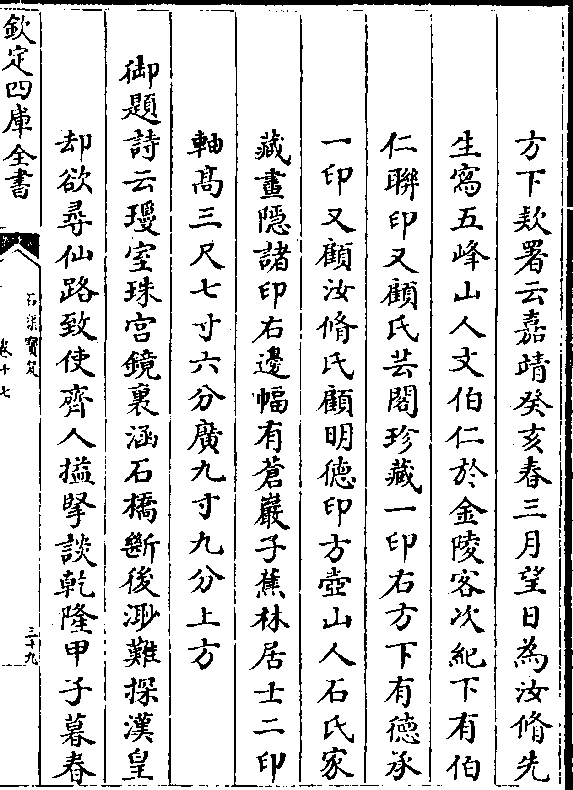 方下欵署云嘉靖癸亥春三月望日為汝脩先
生寫五峰山人文伯仁於金陵客次紀下有伯
仁聨印又顧氏芸閣珍藏一印右方下有德承
一印又顧汝脩氏顧明德印方壺山人石氏家
藏畫隱諸印右邊幅有蒼巖子蕉林居士二印
軸髙三尺七寸六分廣九寸九分上方
御題詩云璦室珠宫鏡裏涵石橋斷後渺難探漢皇
却欲尋仙路致使齊人搤擥談乾隆甲子暮春
欽定四庫全書
石渠寳笈
卷十七
三十九